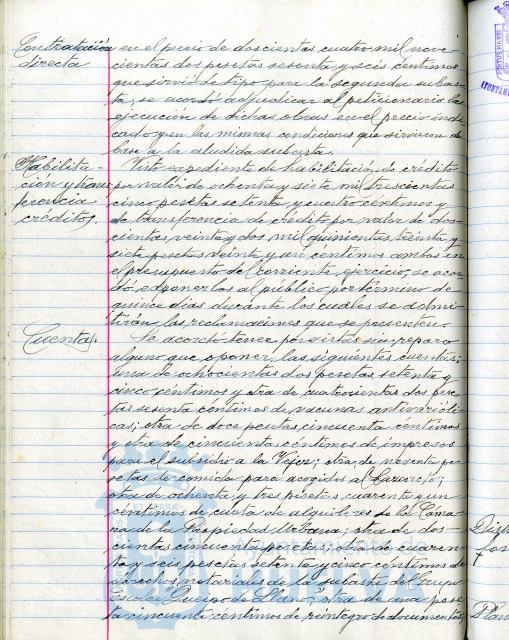 Contratación
directa
en el precio de doscientas cuatro mil nove-
cientas dos pesetas sesenta y seis centimos
que sirvió de tipo para la segunda subas-
ta, se acordó adjudicar al peticionario la
ejecución de dichas obras en el precio indi-
cado y en las mismas condiciones que sirvieron de
base a la aludida subasta.
Habilita-
ción y trans
ferencia
créditos.
Visto expediente de habilitación de crédito
por valor de ochenta y siete mil trescientas
cinco pesetas setenta y cuatro centimos y
de transferencia de crédito por valor de dos-
cientas veinte y dos mil quinientas treinta y
siete pesetas veinte y un centimos ambos en
el presupuesto del corriente ejercicio, se acor
dó exponerlos al público por término de
quince dias durante los cuales se admi-
tirán las reclamaciones que se presenten.
Cuentas.
Se acordó tener por vistas sin reparo
alguno que oponer, las siguientes cuentas:
una de ochocientas dos pesetas setenta y
cinco céntimos y otra de cuatrocientas dos pese
tas sesenta centimos de vacunas antivarióli-
cas; otra de doce pesetas cincuenta céntimos
y otra de cincuenta céntimos de impresos
para el subsidio a la Vejez; otra de noventa pe-
setas de comida para acogidos al
otra de ochenta y tres pesetas cuarenta y un
centimos de cuota de alquileres de la Cáma-
ra de la Propiedad Urbana; otra de dos-
cientas cincuenta pesetas y otra de cuaren
ta y seis pesetas setenta y cinco céntimos de
derechos notariales de la subasta del Grupo
Escolar "Queipo de Llano"; otra de una pese
ta cincuenta céntimos de reintegro de documentos;